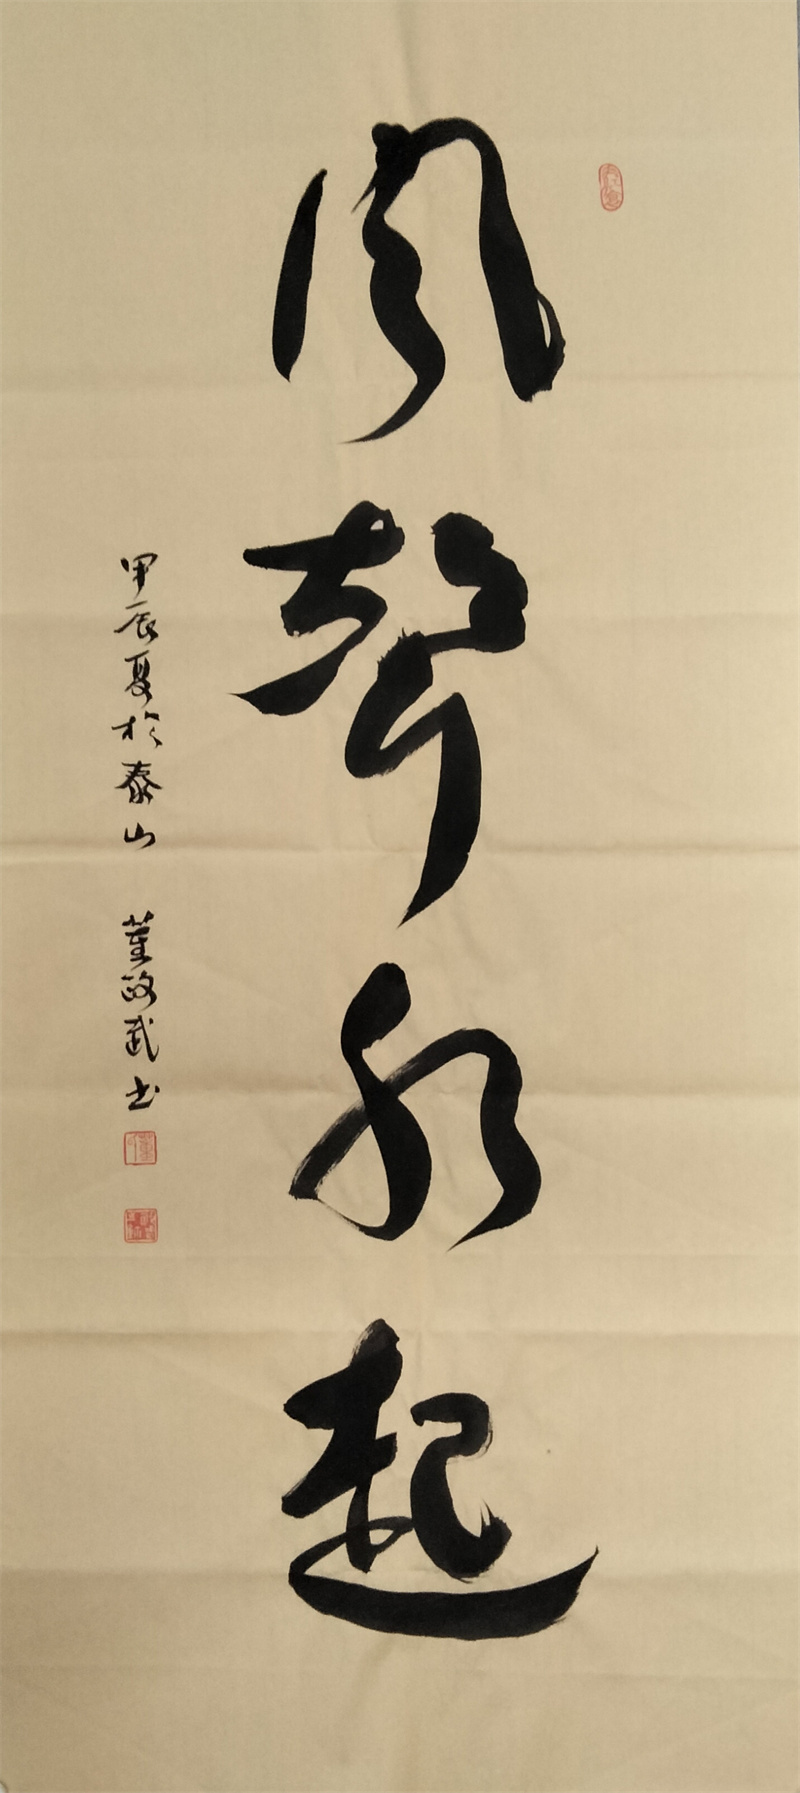 風聲水起
甲辰夏於泰山 董政武书